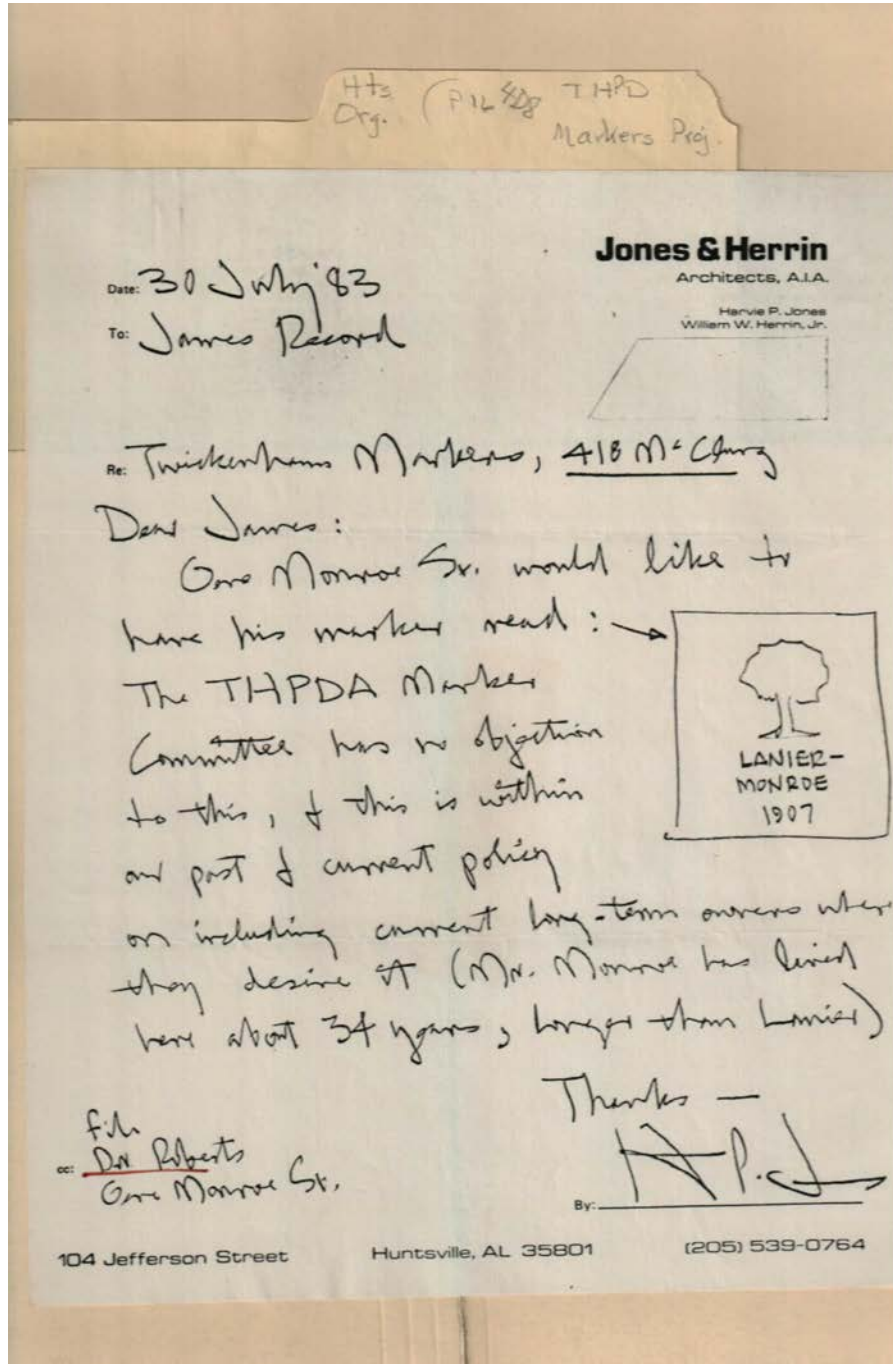 Hts. THPD
Org. Markers Proj.
Jones & Herrin
Architects, A.I.A.
Harvie P. Jones
William W. Herrin, Jr.
Date: 30 July '83
To: James Record
Re: Twickenham Markers, 418 McClung
Dear James:
Gene Monroe Sr. would like to
have his marker read:
The THPDA Marker
Committee has no objection
to this, & this is within
our past & current policy
on including current long-term owners where
they desire it (Mr. Monroe has lived
here about 34 years, longer than Lanier)
LANIER-
MONROE
1907
Thanks —
By: H P. J
file
cc: Dr Roberts
Gene Monroe Sr.
104 Jefferson Street Huntsville, AL 35801 (205) 539-0764